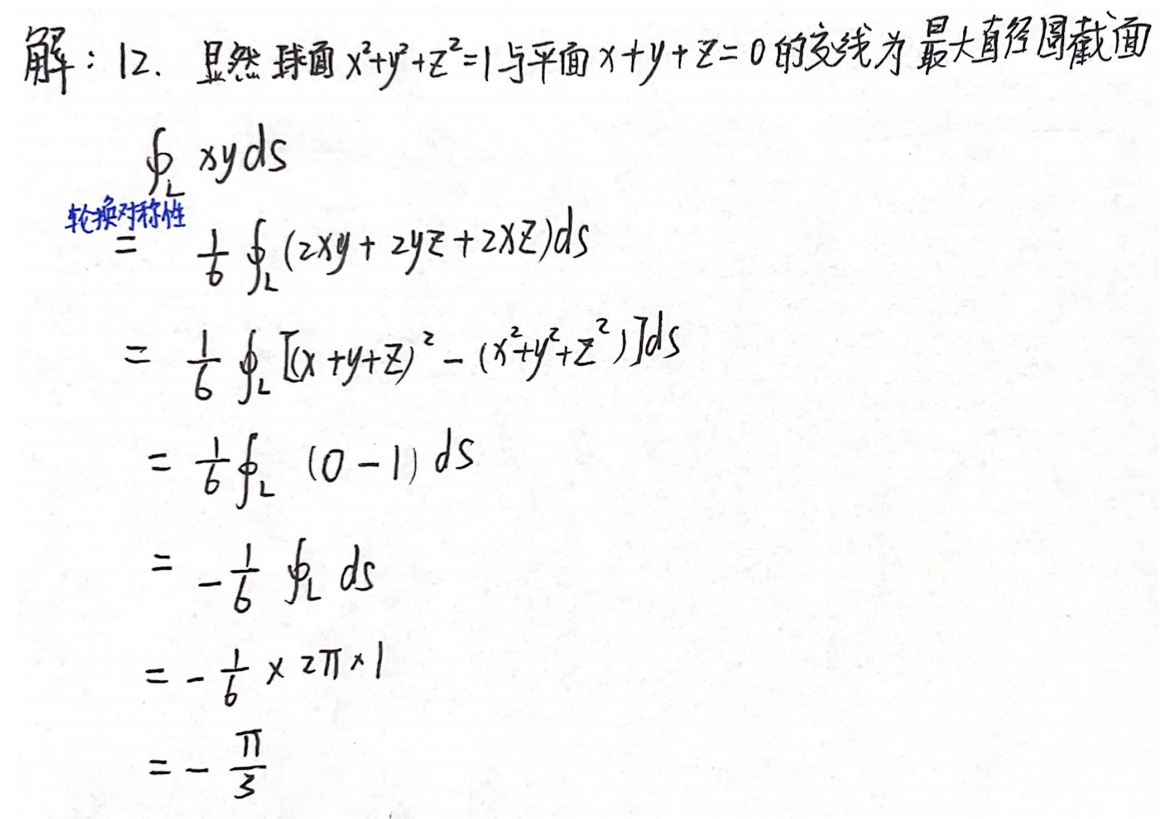 解：12. 显然球面x²+y²+z²=1与平面x+y+z=0的交线为最大直径圆截面
∮_L xyds
轮换对称性
= 1/6 ∮_L (2xy+2yz+2xz)ds
= 1/6 ∮_L [(x+y+z)²-(x²+y²+z²)]ds
= 1/6 ∮_L (0-1) ds
= -1/6 ∮_L ds
= -1/6 × 2π×1
= -π/3